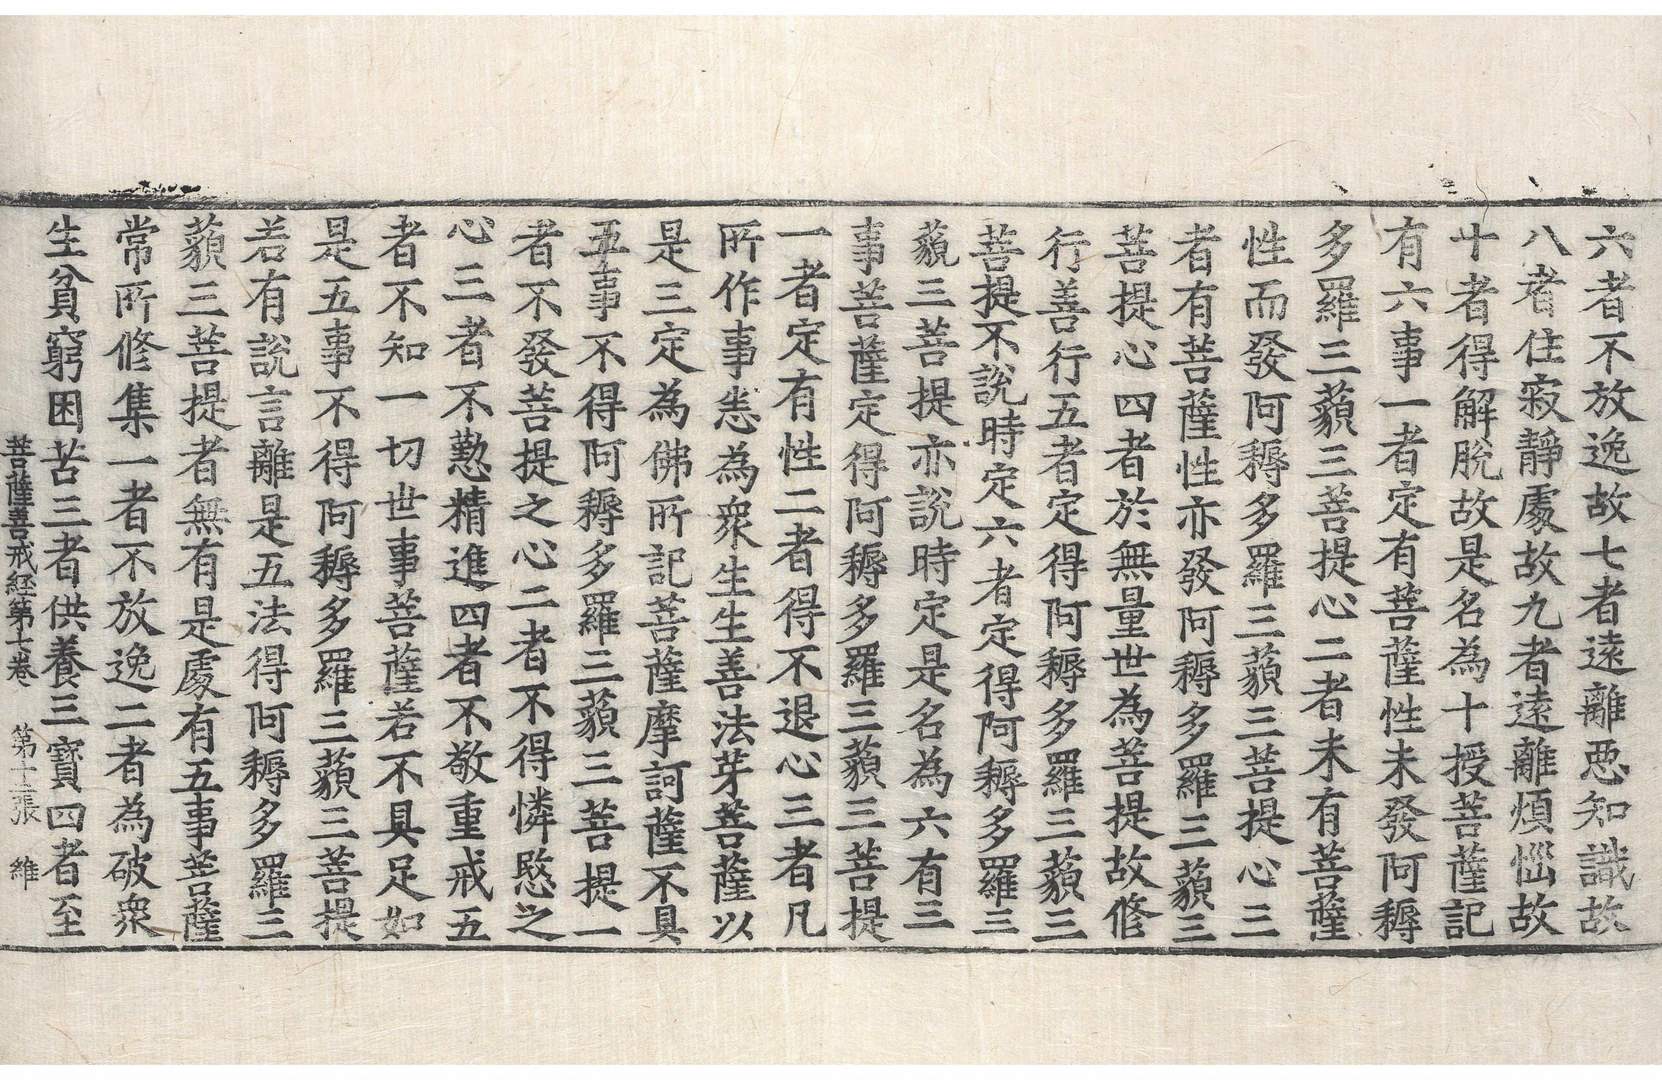 六者不放逸故七者遠離惡知識故
八者住寂靜處故九者遠離煩惱故
十者得解脫故是名為十授菩薩記
有六事一者定有菩薩性未發阿耨
多羅三藐三菩提心二者未有菩薩
性而發阿耨多羅三藐三菩提心三
者有菩薩性亦發阿耨多羅三藐三
菩提心四者於無量世為菩提故修
行善行五者定得阿耨多羅三藐三
菩提不說時定六者定得阿耨多羅三
藐三菩提亦說時定是名為六有三
事菩薩定得阿耨多羅三藐三菩提
一者定有性二者得不退心三者凡
所作事悉為眾生生善法芽菩薩以
是三定為佛所記菩薩摩訶薩不具
五事不得阿耨多羅三藐三菩提一
者不發菩提之心二者不得憐愍之
心三者不懃精進四者不敬重戒五
者不知一切世事菩薩若不具足如
是五事不得阿耨多羅三藐三菩提
若有說言離是五法得阿耨多羅三
藐三菩提者無有是處有五事菩薩
常所修集一者不放逸二者為破眾
生貧窮困苦三者供養三寶四者至
菩薩善戒經第七卷 第十二張 維